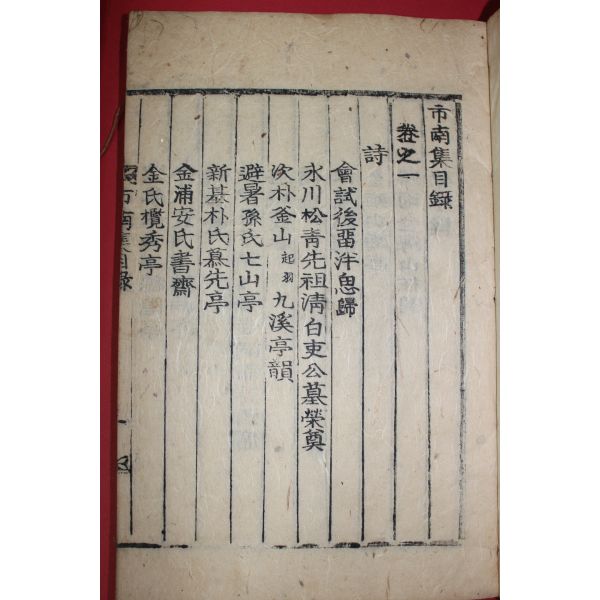 市南集目錄
卷之一
詩
會試後留泮思歸
永川松青先祖淸白吏公墓榮奠
次朴釜山起羽九溪亭韻
避暑孫氏七山亭
新基朴氏慕先亭
金浦安氏書齋
金氏攬秀亭
市南集目錄
一